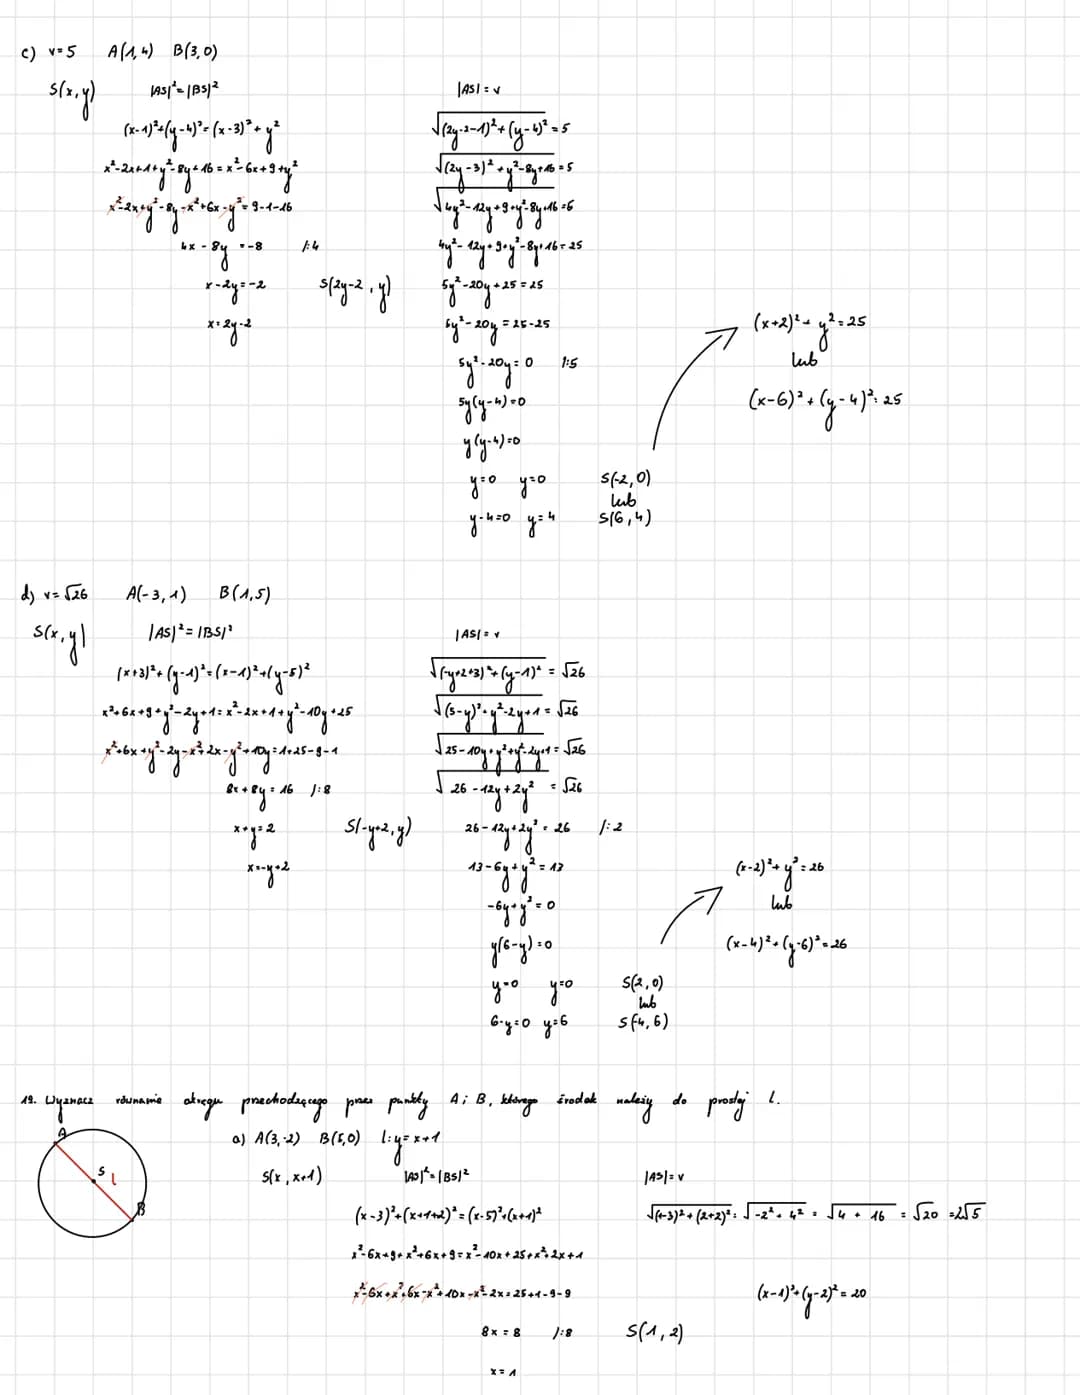 c) r=5 A(1,4) B(3,0)
S(x,y) |AS|²=|BS|²
(x-1)²+(y-4)²=(x-3)²+y²
x²-2x+1+y²-8y+16=x²-6x+9+y²
x²-2x+y²-8y-x²+6x-y²=9-1-16
4x-8y=-8 /:4
x-2y=-2
x=2y-2
S(2y-2,y)
|AS|=r
√(2y-2-1)²+(y-4)²=5
√(2y-3)²+y²-8y+16=5
√4y²-12y+9+y²-8y+16=5
4y²-12y+9+y²-8y+16=25
5y²-20y+25=25
5y²-20y=25-25
5y²-20y=0 /:5
5y(y-4)=0
y(y-4)=0
y=0 y=0
y-4=0 y=4
S(-2,0)
lub
S(6,4)
(x+2)²+y²=25
lub
(x-6)²+(y-4)²=25
d) r=√26 A(-3,1) B(1,5)
S(x,y) |AS|²=|BS|²
(x+3)²+(y-1)²=(x-1)²+(y-5)²
x²+6x+9+y²-2y+1=x²-2x+1+y²-10y+25
x²+6x+y²-2y-x²+2x-y²+10y=1+25-9-1
8x+8y=16 /:8
x+y=2
x=-y+2
S(-y+2,y)
|AS|=r
√(-y+2+3)²+(y-1)²=√26
√(5-y)²+y²-2y+1=√26
√25-10y+y²+y²-2y+1=√26
√26-12y+2y²=√26
26-12y+2y²=26 /:2
13-6y+y²=13
-6y+y²=0
y(6-y)=0
y=0 y=0
6-y=0 y=6
S(2,0)
lub
S(-4,6)
(x-2)²+y²=26
lub
(x-4)²+(y-6)²=26
19. Wyznacz równanie okręgu przechodzącego przez punkty A i B, którego środek należy do prostej l.
A
S
l
B
a) A(3,-2) B(5,0) l:y=x+1
S(x,x+1) |AS|²=|BS|²
(x-3)²+(x+1+2)²=(x-5)²+(x+1)²
x²-6x+9+x²+6x+9=x²-10x+25+x²+2x+1
x²-6x+x²+6x-x²+10x-x²-2x=25+1-9-9
8x=8 /:8
x=1
S(1,2)
|AS|=r
√(1-3)²+(2+2)²=√-2²+4²=√4+16=√20=2√5
(x-1)²+(y-2)²=20